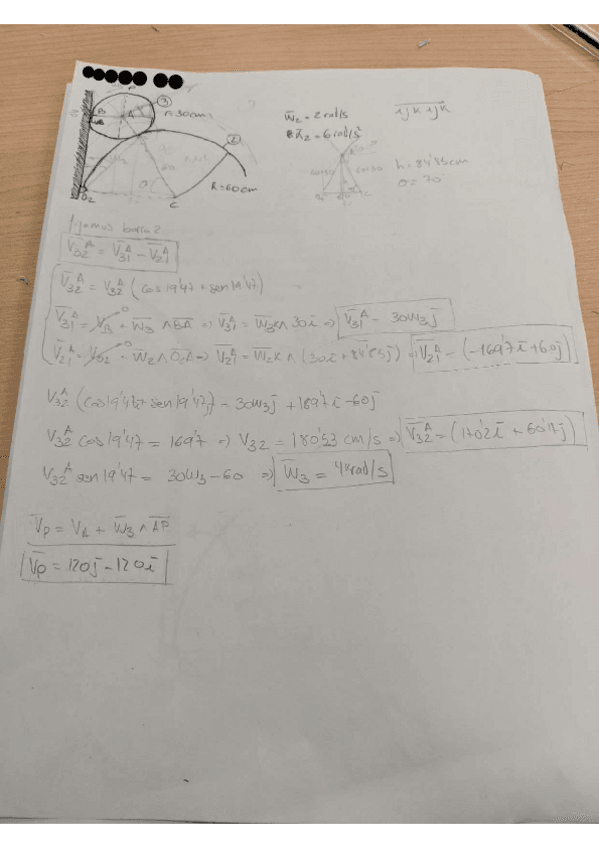 P
3
B
A
r=30cm
2
R=60cm
O₂
θ
C
W̄₂ = 2 rad/s
ᾱ₂ = 6 rad/s²
ijk ijk
h = 84'85cm
θ = 70
fijamos barra 2
V̄₃₂ᴬ = V̄₃₁ᴬ - V̄₂₁ᴬ
V̄₃₂ᴬ = V₃₂ᴬ (cos 19'47 + sen 19'47)
V̄₃₁ᴬ = V̄_B + W̄₃ ∧ BA ⇒ V̄₃₁ᴬ = W̄₃k ∧ 30ī ⇒ V̄₃₁ᴬ = 30W₃j
V̄₂₁ᴬ = V̄_O₂ + W₂ ∧ O₂A ⇒ V̄₂₁ᴬ = W₂k ∧ (30ī + 84'85j) ⇒ V̄₂₁ᴬ = (-169'7ī + 60j)
V₃₂ᴬ (cos19'47ī + sen19'47j) = 30W₃j + 169'7ī - 60j
V₃₂ᴬ cos 19'47 = 169'7 ⇒ V₃₂ = 180'53 cm/s ⇒ V̄₃₂ᴬ = (170'2ī + 60'17j)
V₃₂ᴬ sen 19'47 = 30W₃ - 60 ⇒ W̄₃ = 4k rad/s
V̄p = V_A + W̄₃ ∧ AP
V̄p = 120j - 120ī